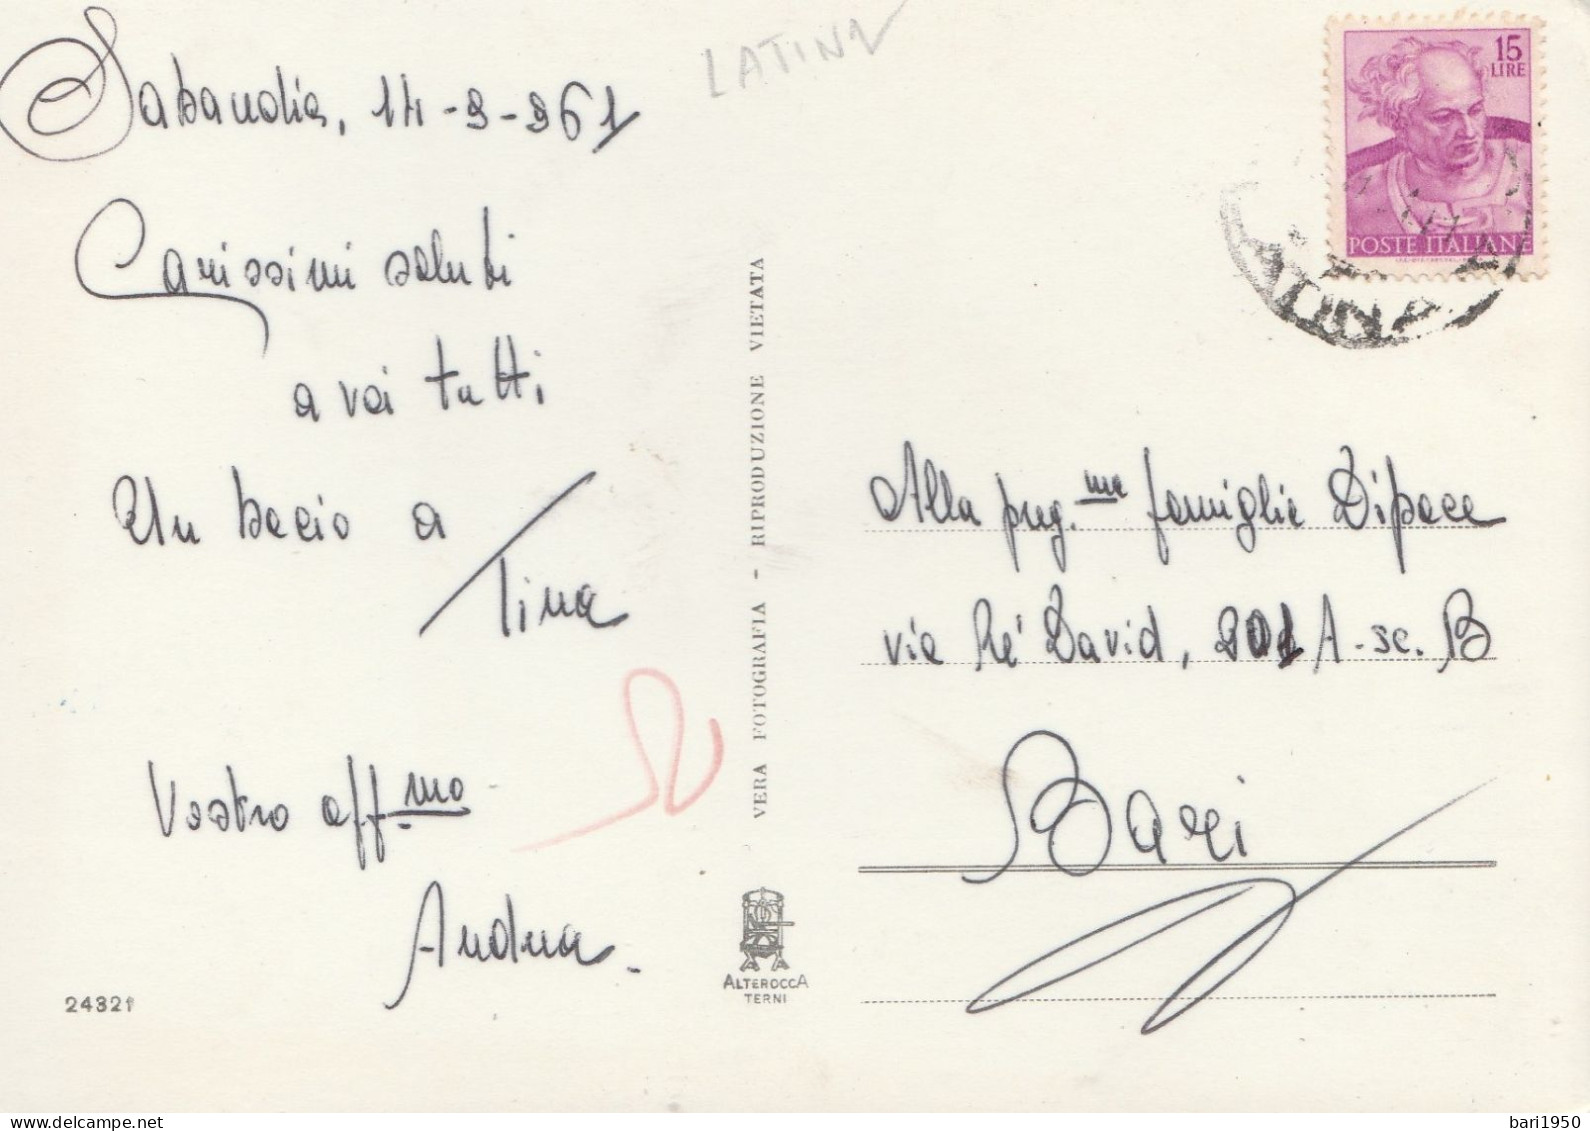 LATINA
Sabaudia, 14-9-961
15
LIRE
POSTE ITALIANE
Carissimi saluti
a voi tutti,
Un bacio a
Tina
Vostro aff.mo
Andrea.
VERA FOTOGRAFIA - RIPRODUZIONE VIETATA
Alla preg.ma famiglia Dipace
via Re' David, 201 A - sc. B
Bari
ALTEROCCA
TERNI
24321
bari1950